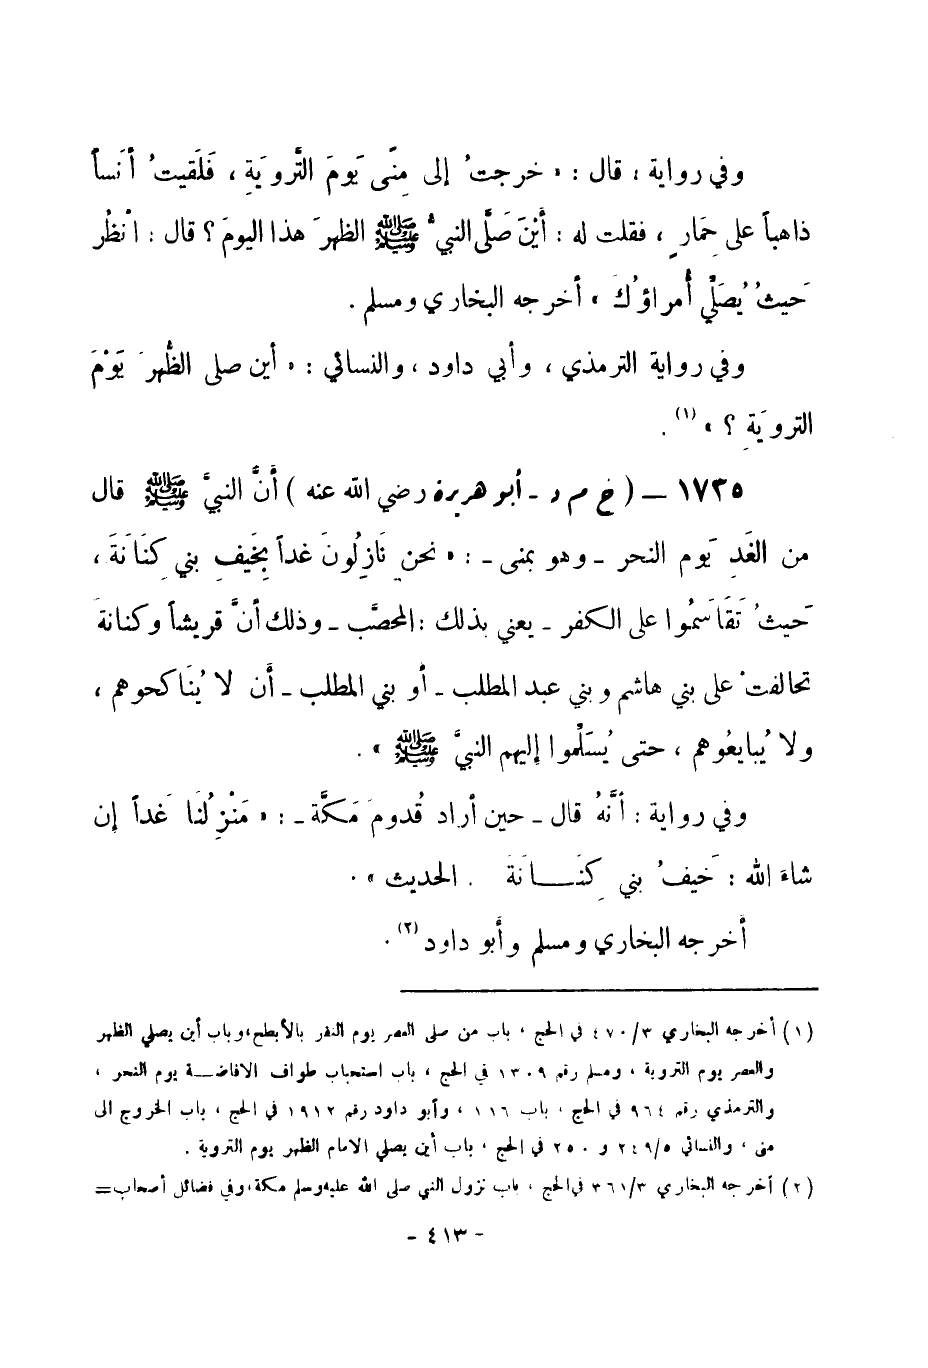 وفي رواية ، قال : « خرجتُ إلى مِنًى يَومَ التَّروَيَةِ ، فَلَقيتُ أنَساً
ذاهباً على حِمَارٍ ، فقلت له : أيْنَ صَلَّى النبيُّ ﷺ الظهرَ هذا اليومَ ؟ قال : انْظُر
حَيثُ يُصَلِّي أُمراؤُكَ » أخرجه البخاري ومسلم .
وفي رواية الترمذي ، وأبي داود ، والنسائي : « أين صلى الظُّهرَ يَوْمَ
الترويَةِ ؟ » (١) .
١٧٣٥ – ( خ م د - أبو هريرة رضي الله عنه ) أنَّ النبيَّ ﷺ قال
من الغَدِ يَوم النحر - وهو بمنى - : « نحن نَازِلُونَ غداً بِخَيفِ بني كِنَانَةَ ،
حَيثُ تَقَاسَمُوا على الكفر - يعني بذلك : المحصَّب - وذلك أنَّ قريشاً وكنانةَ
تحالفتْ على بني هاشم وبني عبد المطلب - أو بني المطلب - أن لا يُنَاكحوهم ،
ولا يُبايعُوهم ، حتى يُسَلِّموا إليهم النبيَّ ﷺ » .
وفي رواية : أنَّهُ قال - حين أراد قُدومَ مَكَّةَ - : « مَنْزِلُنَا غَداً إن
شاءَ الله : خَيفُ بني كِنَـــانَةَ . الحديث » .
أخرجه البخاري ومسلم وأبو داود (٢) .
(١) أخرجه البخاري ٤٧٠/٣ في الحج ، باب من صلى العصر يوم النفر بالأبطح ، وباب أين يصلي الظهر
والعصر يوم التروية ، ومسلم رقم ١٣٠٩ في الحج ، باب استحباب طواف الافاضـــة يوم النحر ،
والترمذي رقم ٩٦٤ في الحج ، باب ١١٦ ، وأبو داود رقم ١٩١٢ في الحج ، باب الخروج الى
منى ، والنسائي ٢٤٩/٥ و ٢٥٠ في الحج ، باب أين يصلي الامام الظهر يوم التروية .
(٢) أخرجه البخاري ٣٦١/٣ في الحج ، باب نزول النبي صلى الله عليه وسلم مكة ، وفي فضائل أصحاب=
- ٤١٣ -